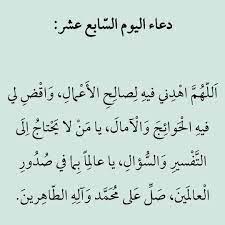 دعاء اليوم السّابع عشر:
اَللّهُمَّ اهْدِني فيهِ لِصالِحِ الأَعْمالِ، وَاقْضِ لي
فيهِ الْحَوائِجَ وَالْآمالَ، يا مَنْ لا يَحْتاجُ اِلَى
التَّفْسيرِ وَالسُّؤالِ، يا عالِماً بِما في صُدُورِ
الْعالَمينَ، صَلِّ عَلى مُحَمَّد وَآلِهِ الطّاهِرينَ.